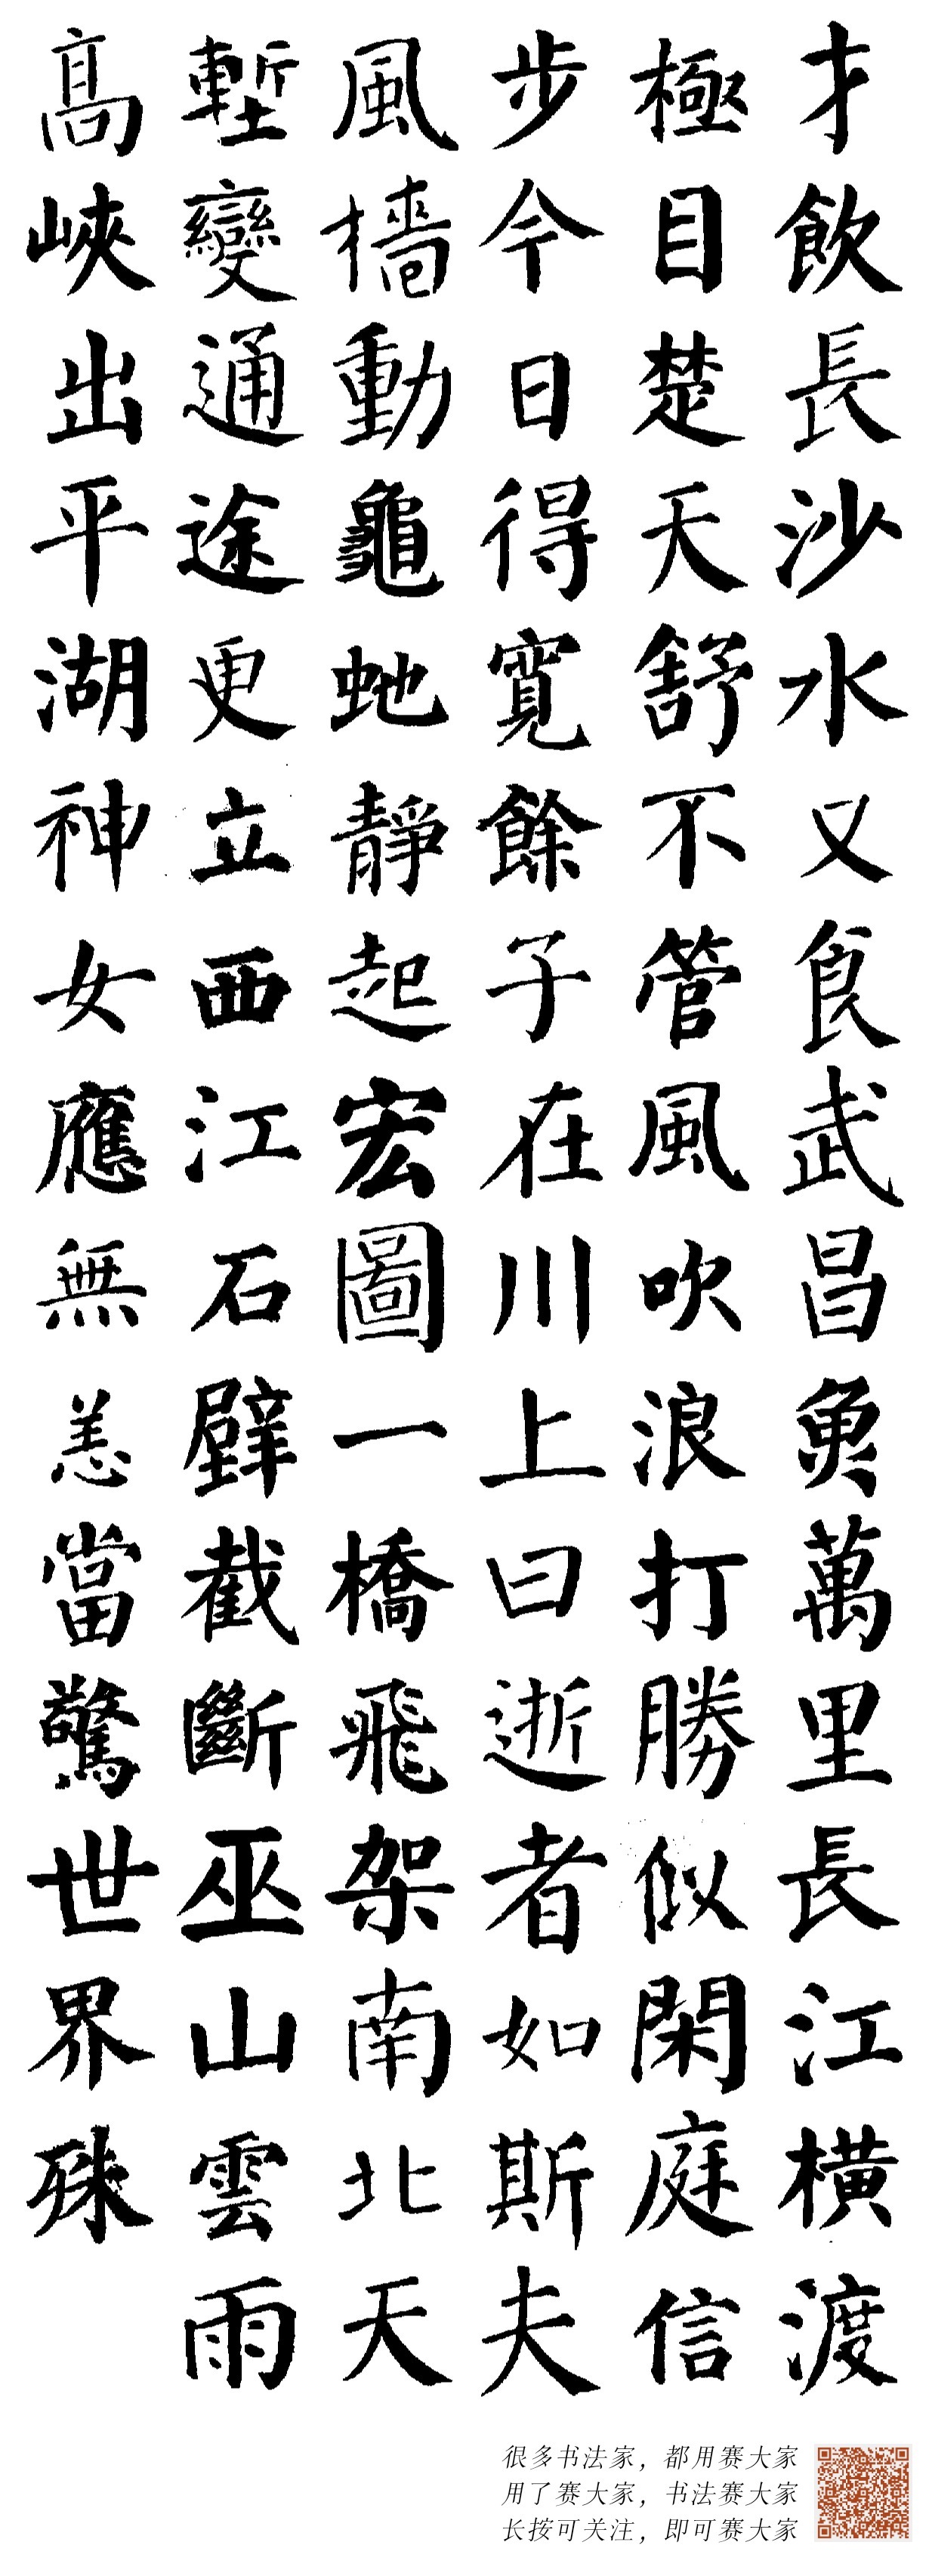 才飲長沙水又食武昌魚萬里長江橫渡
極目楚天舒不管風吹浪打勝似閑庭信
步今日得寬餘子在川上曰逝者如斯夫
風檣動龜虵靜起宏圖一橋飛架南北天
塹變通途更立西江石壁截斷巫山雲雨
高峽出平湖神女應無恙當驚世界殊
很多书法家，都用赛大家
用了赛大家，书法赛大家
长按可关注，即可赛大家